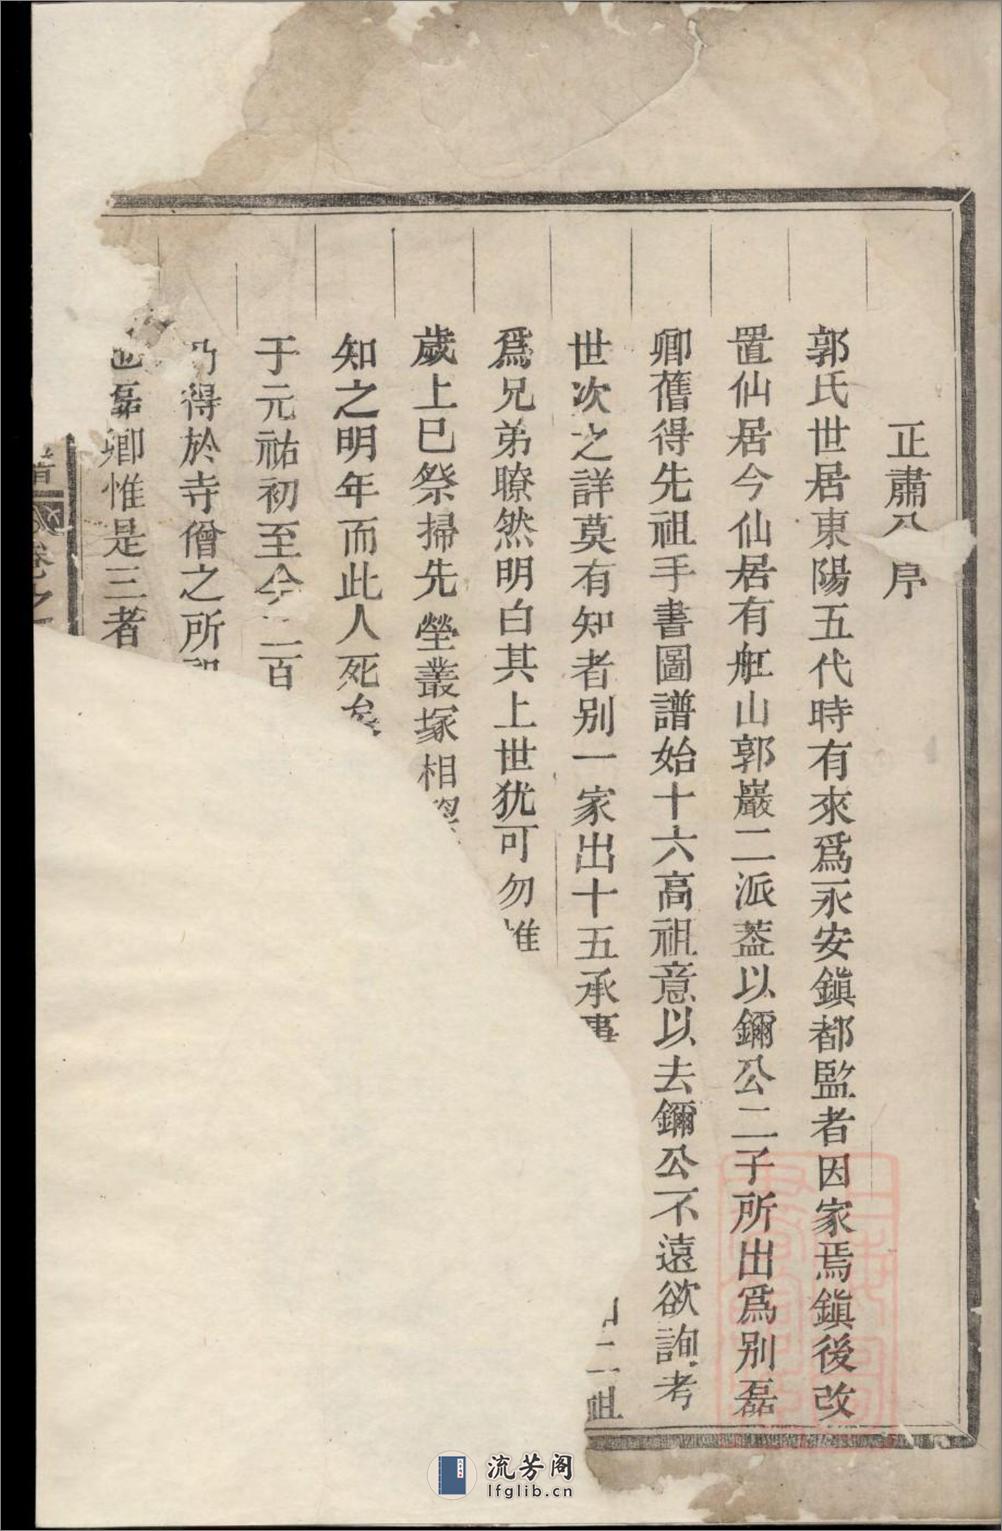 正肅公序
郭氏世居東陽五代時有來爲永安鎭都監者因家焉鎭後改
置仙居今仙居有舡山郭巖二派葢以鑈公二子所出爲別磊
卿舊得先祖手書圖譜始十六高祖意以去鑈公不遠欲詢考
世次之詳莫有知者別一家出十五承事 二祖
爲兄弟瞭然明白其上世犹可勿惟
歲上巳祭掃先塋叢塚相
知之明年而此人死矣
于元祐初至今二百
乃得於寺僧之所
也磊卿惟是三者
譜 卷之
流芳阁
lfglib.cn